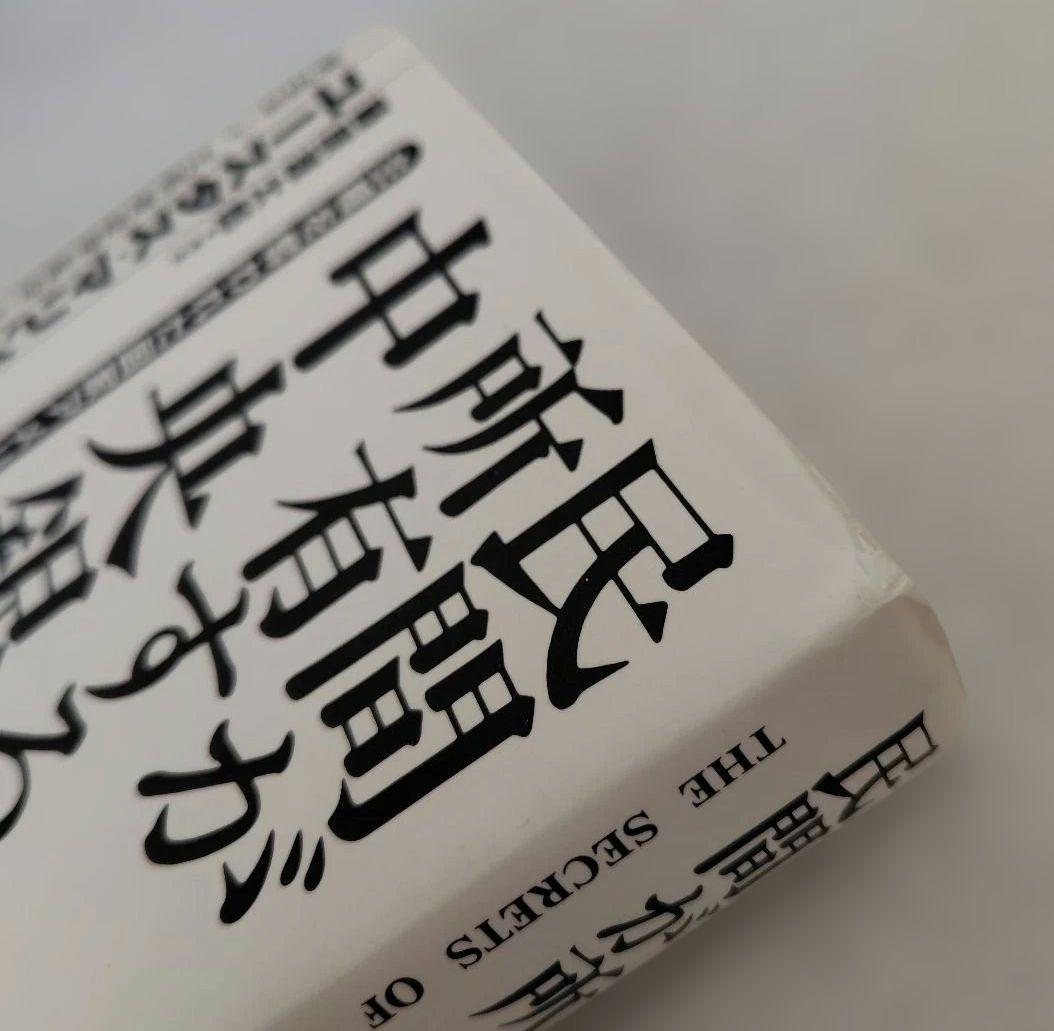 民間が
所有する
中央銀
ユースタス・マリン
THE SECRETS OF
民間が所